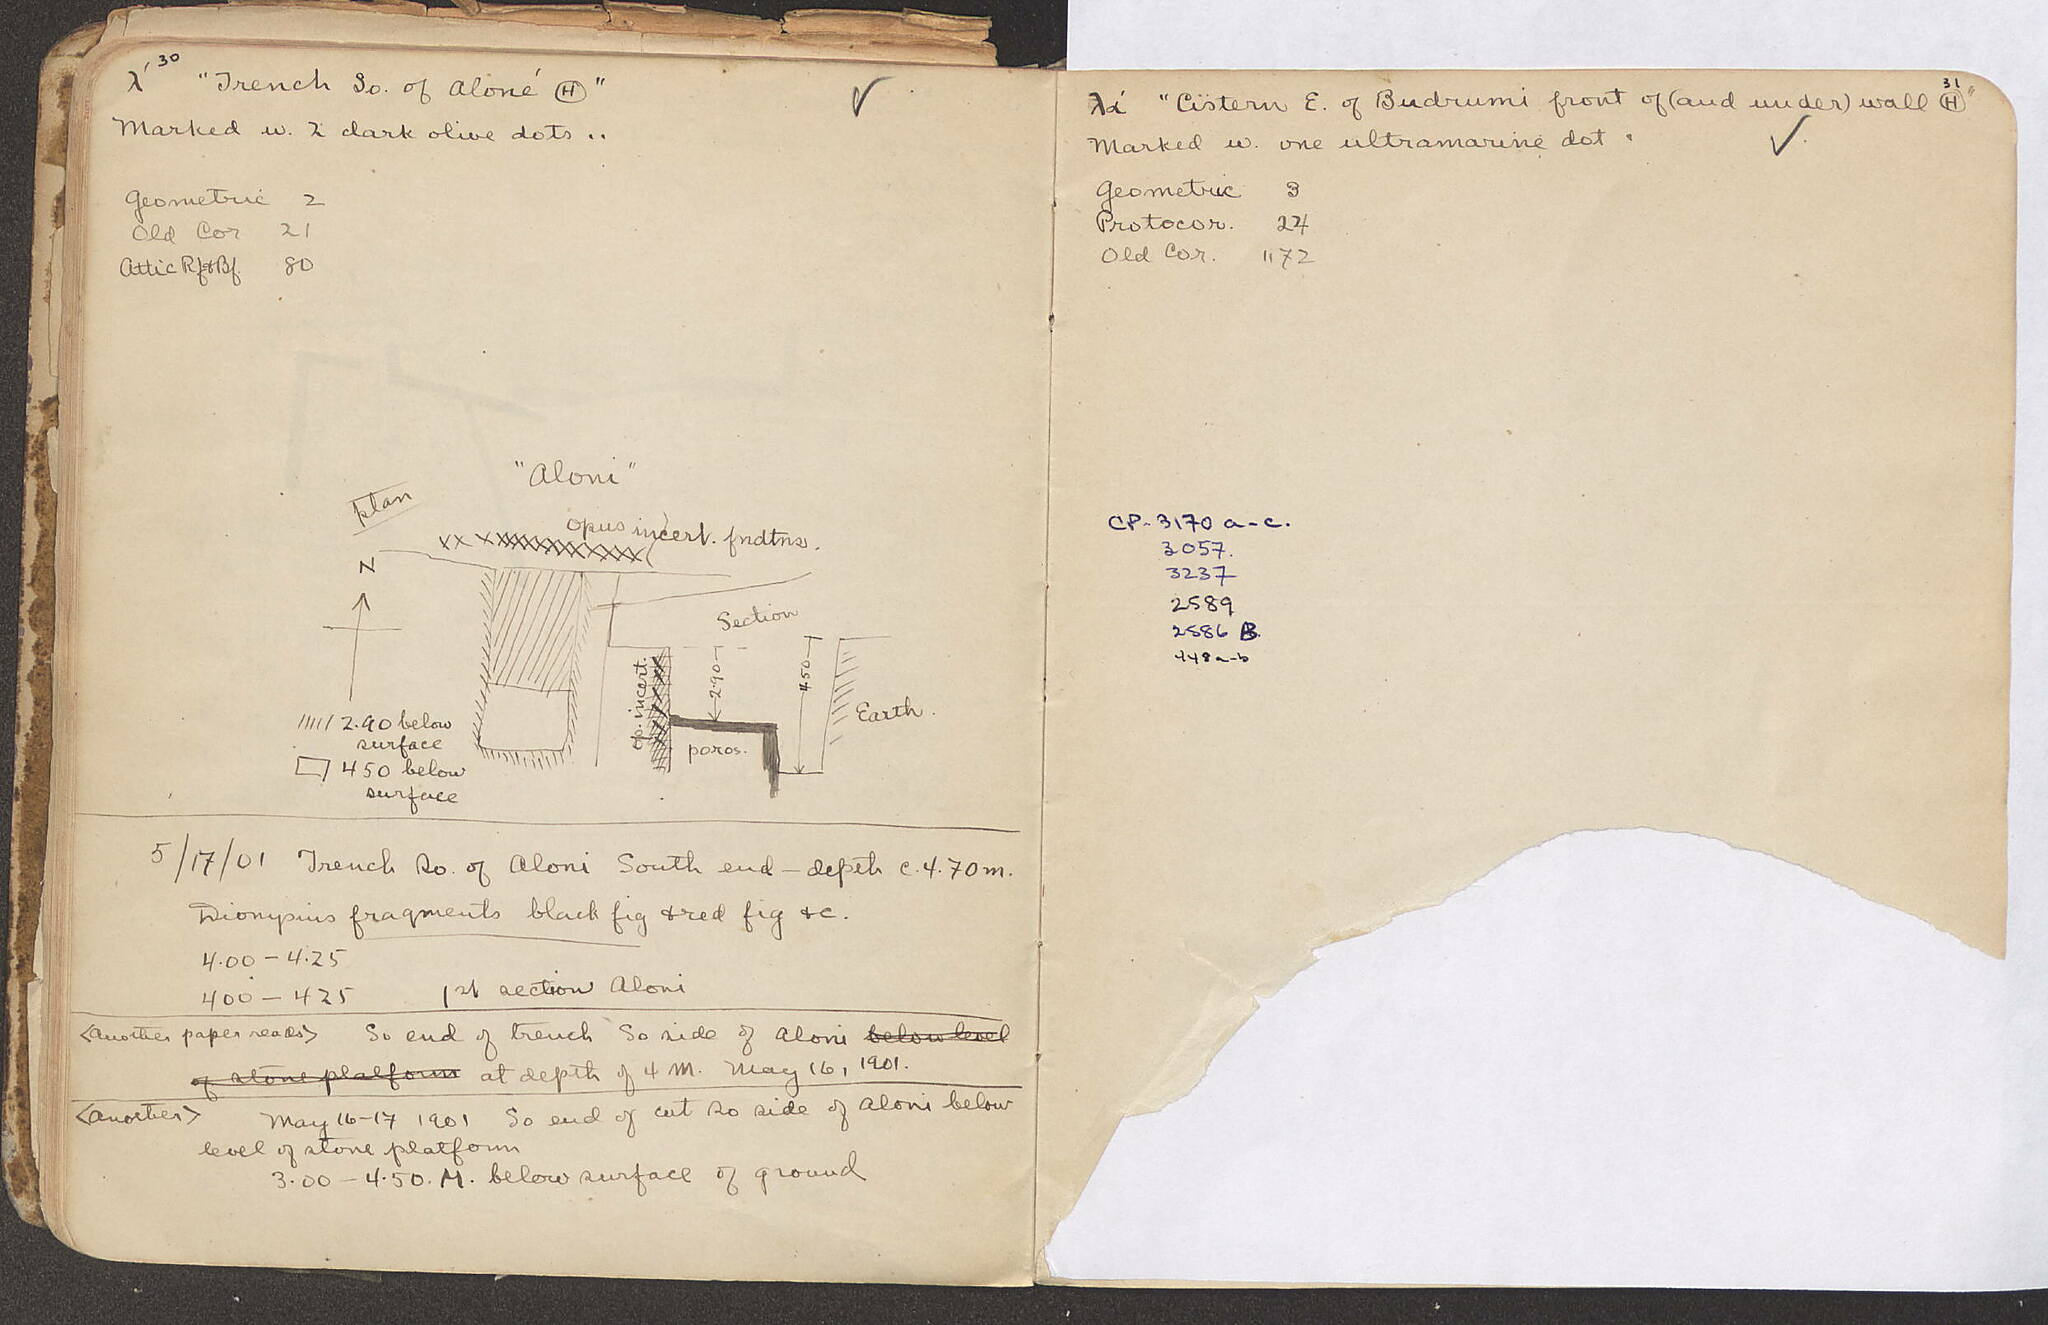 λ´ 30 "Trench So. of Aloné Ⓗ"
Marked w. 2 dark olive dots ..
Geometric 2
Old Cor 21
Attic Rf & Bf. 80
"Aloni"
Plan
opus incert. fndtns.
N
Section
op. incert.
2.90
450
Earth.
poros.
2.90 below
surface
450 below
surface
5/17/01 Trench So. of Aloni South end – depth c. 4.70 m.
Dionysius fragments black fig & red fig &c.
4.00 – 4.25
400 – 425 1st section Aloni
<Another paper reads> So end of trench So side of Aloni below level
of stone platform at depth of 4 M. May 16, 1901.
<Another> May 16-17 1901 So end of cut So side of Aloni below
level of stone platform
3.00 – 4.50. M. below surface of ground
31
λα´ "Cistern E. of Budrumi front of (and under) wall Ⓗ"
Marked w. one ultramarine dot .
Geometric 3
Protocor. 24
Old Cor. 1172
CP- 3170 a-c.
3057.
3237
2589
2586 B.
448a-b